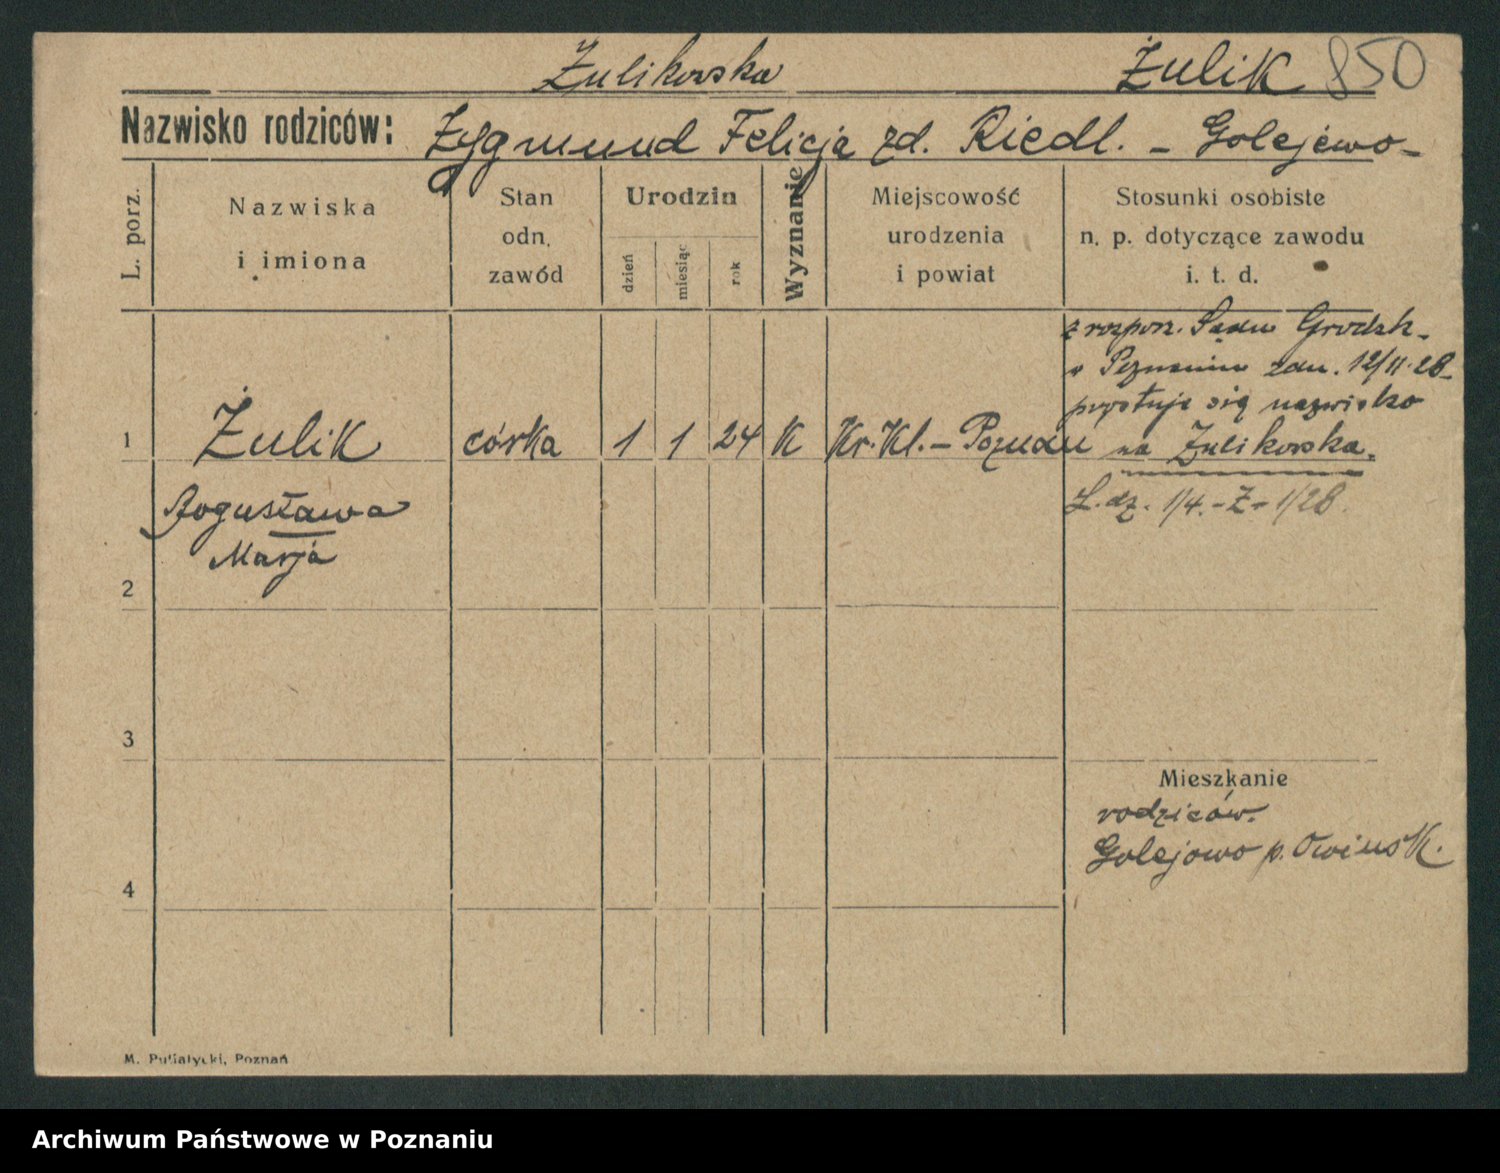 Żulikowska Żulik 850
Nazwisko rodziców: Zygmund Felicja zd. Riedl. – Golejewo –
L. porz.
Nazwiska
i imiona
Stan
odn.
zawód
Urodzin
dzień
miesiąc
rok
Wyznanie
Miejscowość
urodzenia
i powiat
Stosunki osobiste
n. p. dotyczące zawodu
i. t. d.
z rozporz. Sądu Grodzk.
w Poznaniu zdn. 12/11.28
nazwisko
1 Żulik córka 1 1 24 K Kr. Kl. – na Żulikowska.
Bogusława
Marja
L. dz. 1/4. – Ż – 1/28.
2
3
Mieszkanie
rodziców.
Golejowo p. Owińsk.
4
M. Putiatycki, Poznań
Archiwum Państwowe w Poznaniu